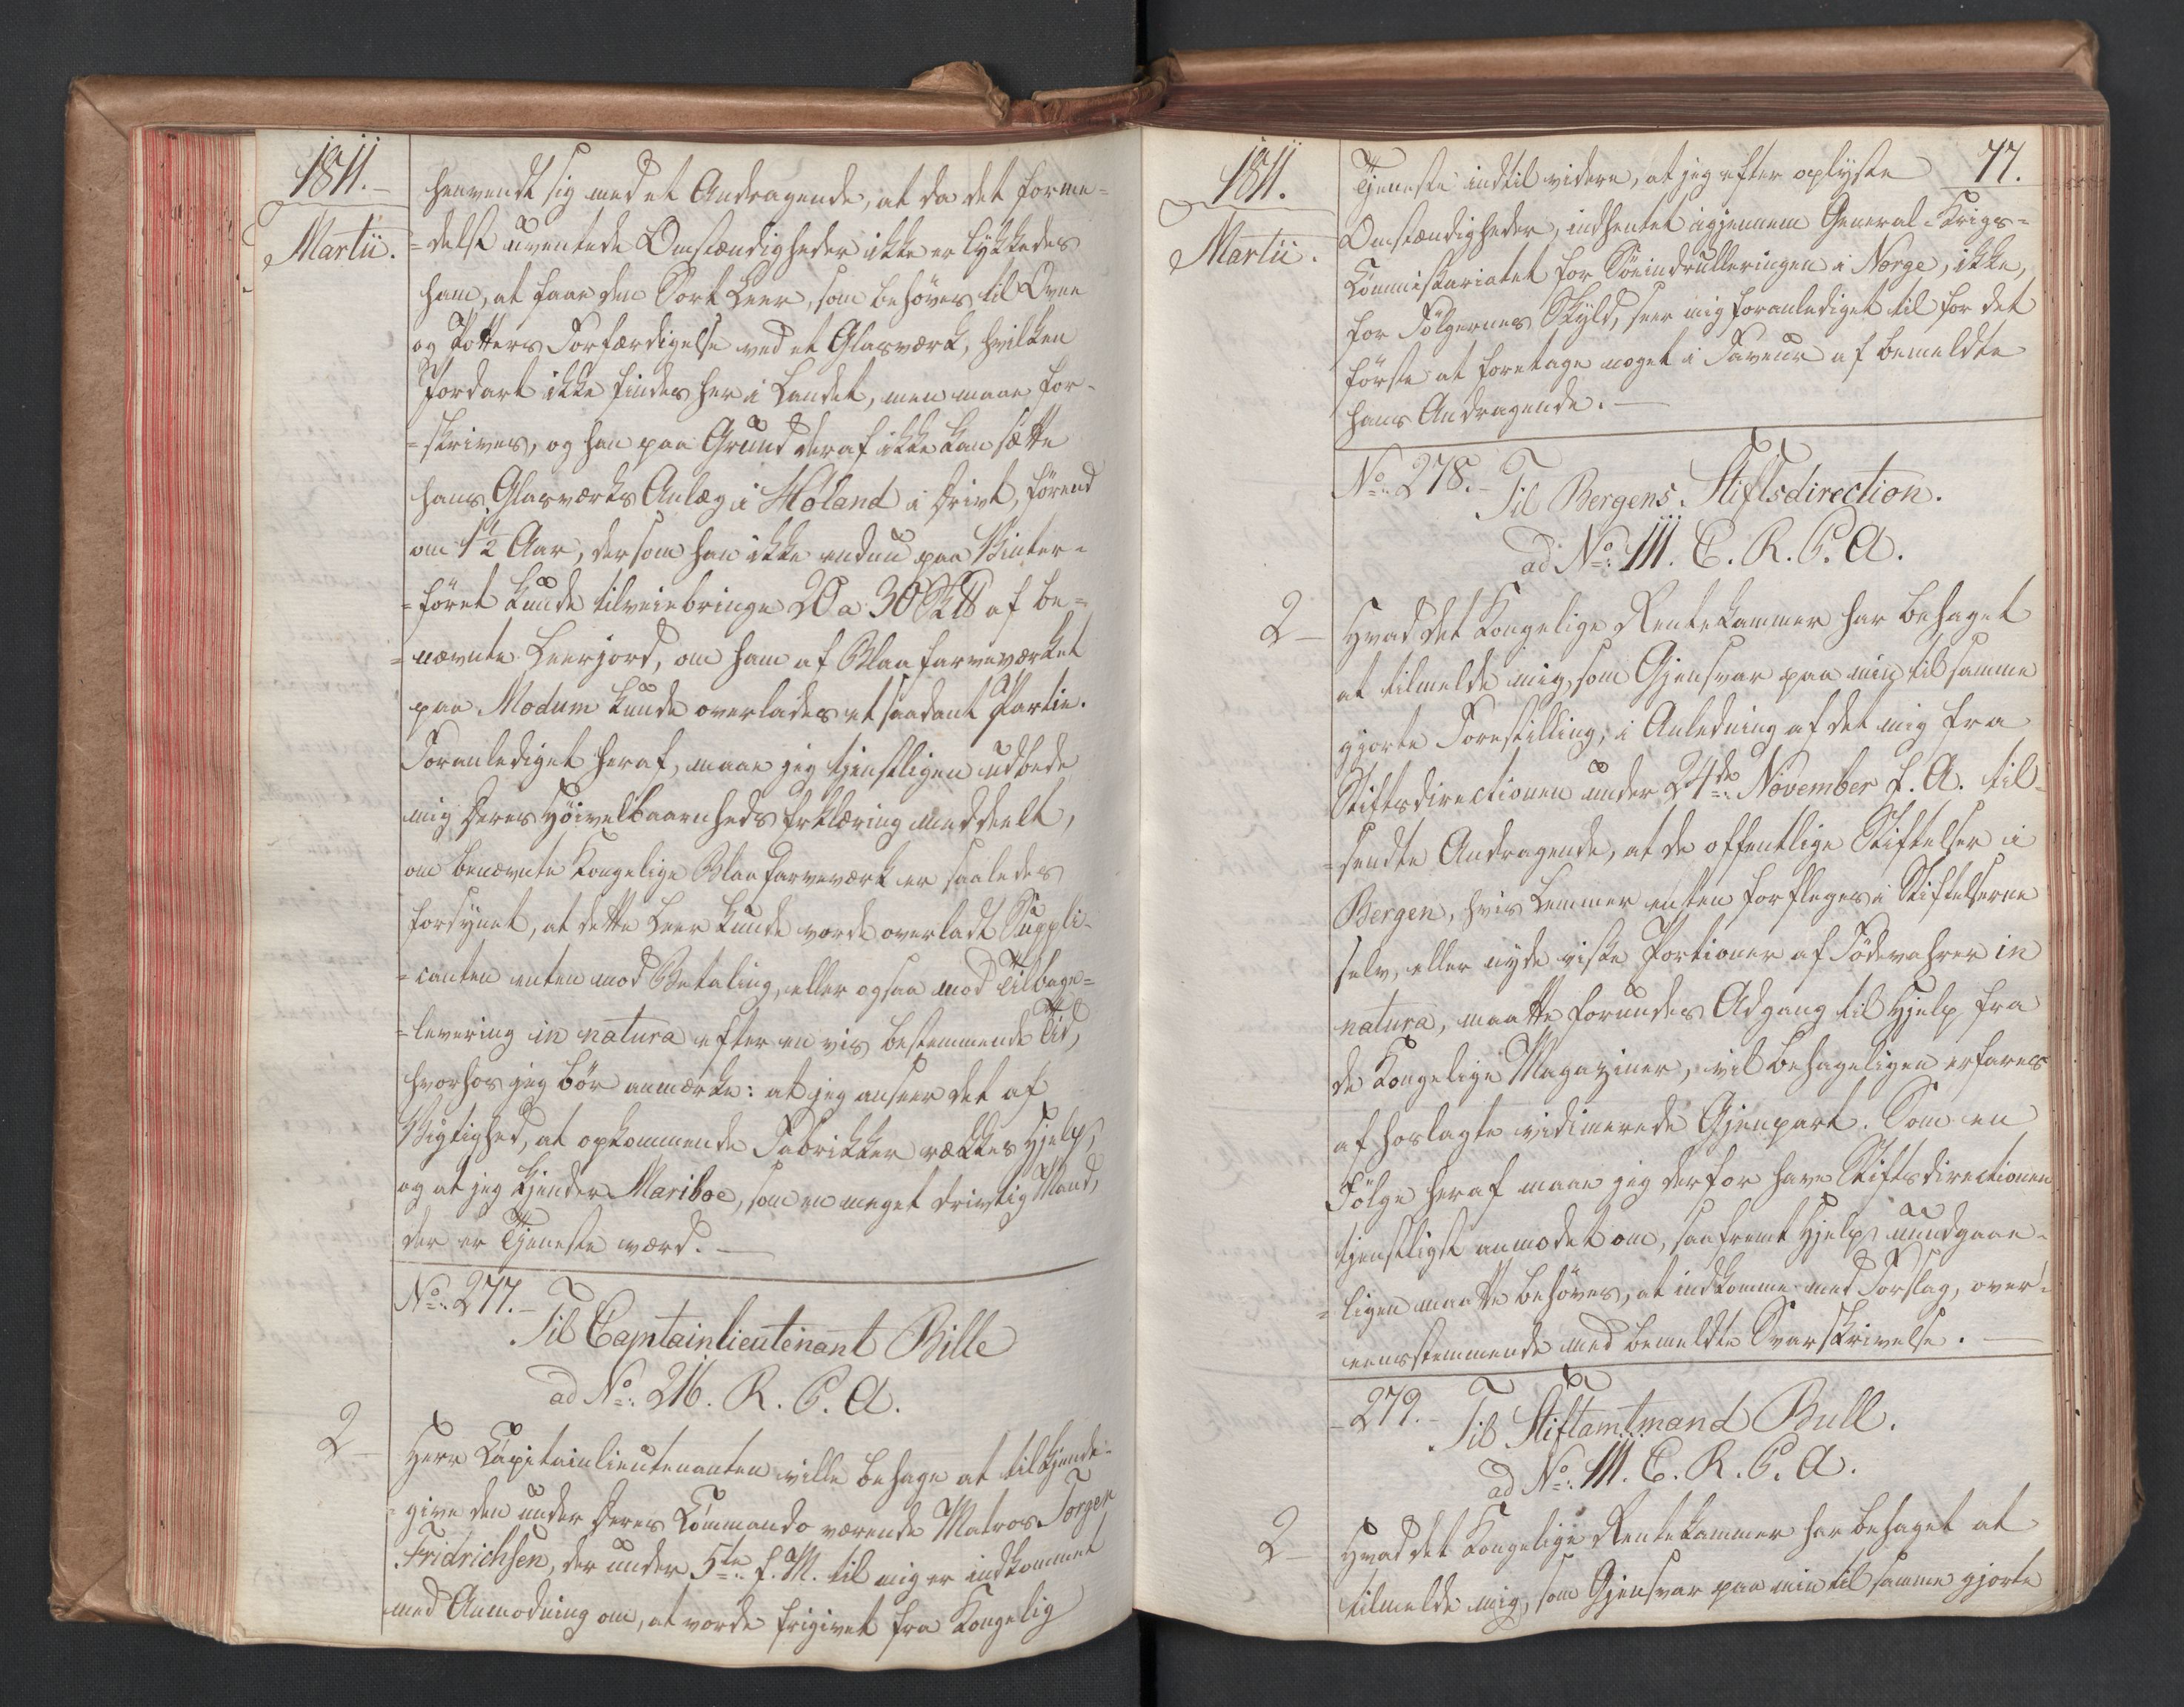 1811.
Martii.
henvendt sig med et Andragende, at da det forme-
=delst uventede Omstændigheder ikke er lykkedes
ham, at faae den Sort Leer, som behöves til Ovne
og Potters Forfærdigelse ved et Glasværk, hvilken
Jordart ikke findes her i Landet, men maae for-
=skrives, og han paa Grund deraf ikke kan sætte
hans Glasværks Anlæg i Höland i Drivt, förend
om 1½ Aar, dersom han ikke endnu paa Vinter-
=föret kunde tilveiebringe 20 a 30 Sk℔ af be-
=nævnte Leerjord, om ham af Blaafarveværket
paa Modum kunde overlades et saadant Partie.
Foranlediget heraf, maae jeg tjenstligen udbede
mig Deres Höivelbaarenheds Erklæring meddeelt,
om benævnte Kongelige Blaafarveværk er saaledes
forsynet, at dette Leer kunde vorde overladt Suppli-
=canten enten mod Betaling, eller ogsaa mod Tilbage-
=levering in natura efter en vis bestemmende Tid,
hvorhos jeg bör anmærke: at jeg anseer det af
Vigtighed, at opkommende Fabrikker rækkes Hjelp,
og at jeg kjender Mariboe, som en meget drivtig Mand,
der er Tjeneste værd.
No. 277.
Til Captainlieutenant Bille
ad No. 216. R. C. A.
2
Herr Capitainlieutenanten ville behage at tilkjende-
=give den under Deres Commando værende Matros Törger
Fridrichsen, der under 5te f. M. til mig er indkommet
med Anmodning om, at vorde frigivet fra Kongelig
1811.
Martii.
77.
Tjeneste indtil videre, at jeg efter oplyste
Omstændigheder, indhentet igjennem General-Krigs-
Commissariatet for Söeindrulleringen i Norge, ikke,
for Fölgernes Skyld, seer mig foranlediget til for det
förste at foretage noget i Faveur af bemeldte
hans Andragende.
No. 278.
Til Bergens Stiftsdirection.
ad No. 111. C. R. C. A.
2
Hvad det Kongelige Rentekammer har behaget
at tilmelde mig, som Gjensvar paa min til samme
gjorte Forestilling, i Anledning af det mig fra
Stiftsdirectionen under 24de November f. A. til-
=sendte Andragende, at de offentlige Stiftelser i
Bergen, hvis Lemmer enten forpleges i Stiftelserne
selv, eller nyde visse Portioner af Födevahrer in
natura, maatte forundes Adgang til Hjelp fra
de Kongelige Magaziner, vil behageligen erfares
af hoslagte vidimerede Gjenpart. Som en
Fölge heraf maae jeg derfor have Stiftsdirectionen
tjenstligst anmodet om, saafremt Hjelp uundgaae-
=ligen maatte behöves, at indkomme med Forslag, over-
eensstemmende med bemeldte Svarskrivelse.
-279.-
Til Stiftamtmand Bull.
ad No. 111. C. R. C. A.
2
Hvad det Kongelige Rentekammer har behaget at
tilmelde mig, som Gjensvar paa min til samme gjorte